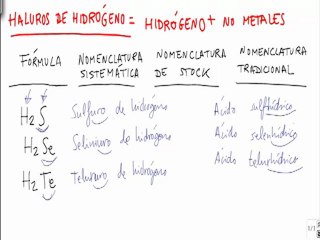 HALUROS DE HIDRÓGENO = HIDRÓGENO + NO METALES
FÓRMULA NOMENCLATURA SISTEMÁTICA NOMENCLATURA DE STOCK NOMENCLATURA TRADICIONAL
H2S Sulfuro de hidrógeno Ácido sulfhídrico
H2Se Seleniuro de hidrógeno Ácido selenhídrico
H2Te Telururo de hidrógeno Ácido telurhídrico